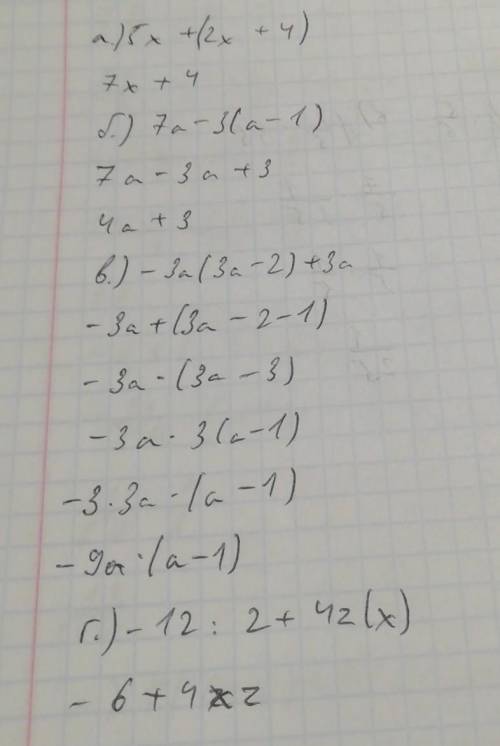 а.) 5x + (2x + 4)
7x + 4
б.) 7a - 3(a - 1)
7a - 3a + 3
4a + 3
в.) - 3a(3a - 2) + 3a
- 3a + (3a - 2 - 1)
- 3a · (3a - 3)
- 3a · 3(a - 1)
- 3 · 3a · (a - 1)
- 9a · (a - 1)
г.) - 12 : 2 + 4z(x)
- 6 + 4xz